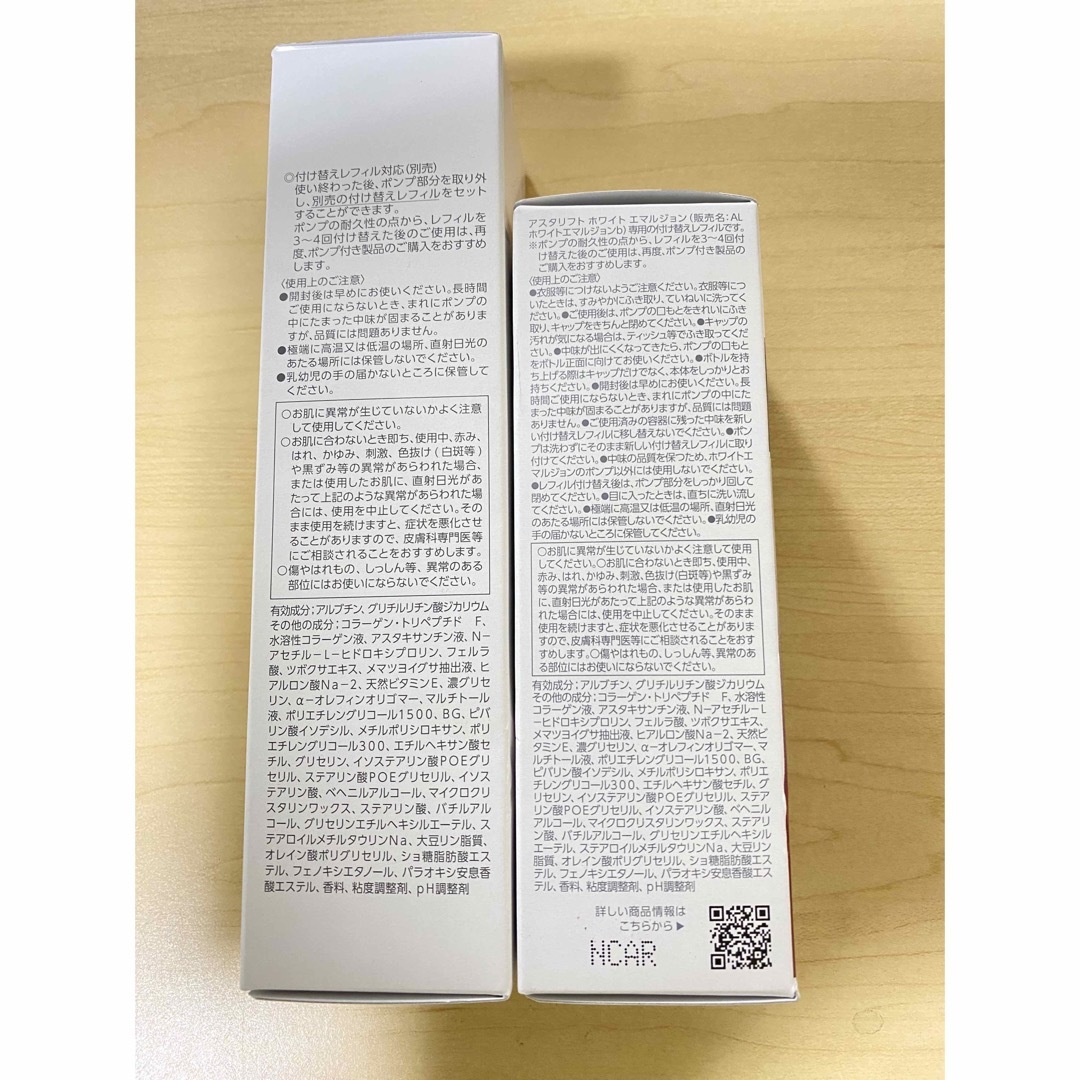 ◎付け替えレフィル対応（別売）
使い終わった後、ポンプ部分を取り外
し、別売の付け替えレフィルをセット
することができます。
ポンプの耐久性の点から、レフィルを
3〜4回付け替えた後のご使用は、再
度、ポンプ付き製品のご購入をおすすめ
します。
〈使用上のご注意〉
●開封後は早めにお使いください。長時間
ご使用にならないとき、まれにポンプの
中にたまった中味が固まることがありま
すが、品質には問題ありません。
●極端に高温又は低温の場所、直射日光の
あたる場所には保管しないでください。
●乳幼児の手の届かないところに保管して
ください。
○お肌に異常が生じていないかよく注意
して使用してください。
○お肌に合わないとき即ち、使用中、赤み、
はれ、かゆみ、刺激、色抜け(白斑等)
や黒ずみ等の異常があらわれた場合、
または使用したお肌に、直射日光があ
たって上記のような異常があらわれた場
合には、使用を中止してください。その
まま使用を続けますと、症状を悪化させ
ることがありますので、皮膚科専門医等
にご相談されることをおすすめします。
○傷やはれもの、しっしん等、異常のある
部位にはお使いにならないでください。
有効成分；アルブチン、グリチルリチン酸ジカリウム
その他の成分；コラーゲン・トリペプチド F、
水溶性コラーゲン液、アスタキサンチン液、N－
アセチル－L－ヒドロキシプロリン、フェルラ
酸、ツボクサエキス、メマツヨイグサ抽出液、ヒ
アルロン酸Na－2、天然ビタミンE、濃グリセ
リン、α－オレフィンオリゴマー、マルチトール
液、ポリエチレングリコール1500、BG、ピバ
リン酸イソデシル、メチルポリシロキサン、ポリ
エチレングリコール300、エチルヘキサン酸セ
チル、グリセリン、イソステアリン酸POEグリ
セリル、ステアリン酸POEグリセリル、イソス
テアリン酸、ベヘニルアルコール、マイクロク
リスタリンワックス、ステアリン酸、バチルアル
コール、グリセリンエチルヘキシルエーテル、ス
テアロイルメチルタウリンNa、大豆リン脂質、
オレイン酸ポリグリセリル、ショ糖脂肪酸エス
テル、フェノキシエタノール、パラオキシ安息香
酸エステル、香料、粘度調整剤、pH調整剤
アスタリフト ホワイト エマルジョン（販売名：AL
ホワイトエマルジョンb）専用の付け替えレフィルです。
※ポンプの耐久性の点から、レフィルを3〜4回付
け替えた後のご使用は、再度、ポンプ付き製品の
ご購入をおすすめします。
〈使用上のご注意〉
●衣服等につけないようご注意ください。衣服等につ
いたときは、すみやかにふき取り、ていねいに洗ってく
ださい。●ご使用後は、ポンプの口もとをきれいにふき
取り、キャップをきちんと閉めてください。●キャップの
汚れが気になる場合は、ティッシュ等でふき取ってくだ
さい。●中味が出にくくなってきたら、ポンプの口もと
をボトル正面に向けてお使いください。●ボトルを持
ち上げる際はキャップだけでなく、本体をしっかりとお
持ちください。●開封後は早めにお使いください。長
時間ご使用にならないとき、まれにポンプの中にた
まった中味が固まることがありますが、品質には問題
ありません。●ご使用済みの容器に残った中味を新し
い付け替えレフィルに移し替えないでください。●ポン
プは洗わずにそのまま新しい付け替えレフィルに取り
付けてください。●中味の品質を保つため、ホワイトエ
マルジョンのポンプ以外には使用しないでください。
●レフィル付け替え後は、ポンプ部分をしっかり回して
閉めてください。●目に入ったときは、直ちに洗い流し
てください。●極端に高温又は低温の場所、直射日光
のあたる場所には保管しないでください。●乳幼児の
手の届かないところに保管してください。
○お肌に異常が生じていないかよく注意して使用
してください。○お肌に合わないとき即ち、使用中、
赤み、はれ、かゆみ、刺激、色抜け(白斑等)や黒ずみ
等の異常があらわれた場合、または使用したお肌
に、直射日光があたって上記のような異常があらわ
れた場合には、使用を中止してください。そのまま
使用を続けますと、症状を悪化させることがありま
すので、皮膚科専門医等にご相談されることをおす
すめします。○傷やはれもの、しっしん等、異常のあ
る部位にはお使いにならないでください。
有効成分；アルブチン、グリチルリチン酸ジカリウム
その他の成分；コラーゲン・トリペプチド F、水溶性
コラーゲン液、アスタキサンチン液、N－アセチル－L
－ヒドロキシプロリン、フェルラ酸、ツボクサエキス、
メマツヨイグサ抽出液、ヒアルロン酸Na－2、天然ビ
タミンE、濃グリセリン、α－オレフィンオリゴマー、マ
ルチトール液、ポリエチレングリコール1500、BG、
ピバリン酸イソデシル、メチルポリシロキサン、ポリエ
チレングリコール300、エチルヘキサン酸セチル、グ
リセリン、イソステアリン酸POEグリセリル、ステア
リン酸POEグリセリル、イソステアリン酸、ベヘニル
アルコール、マイクロクリスタリンワックス、ステアリ
ン酸、バチルアルコール、グリセリンエチルヘキシルエ
ーテル、ステアロイルメチルタウリンNa、大豆リン
脂質、オレイン酸ポリグリセリル、ショ糖脂肪酸エス
テル、フェノキシエタノール、パラオキシ安息香酸エス
テル、香料、粘度調整剤、pH調整剤
詳しい商品情報は
こちらから▶
NCAR